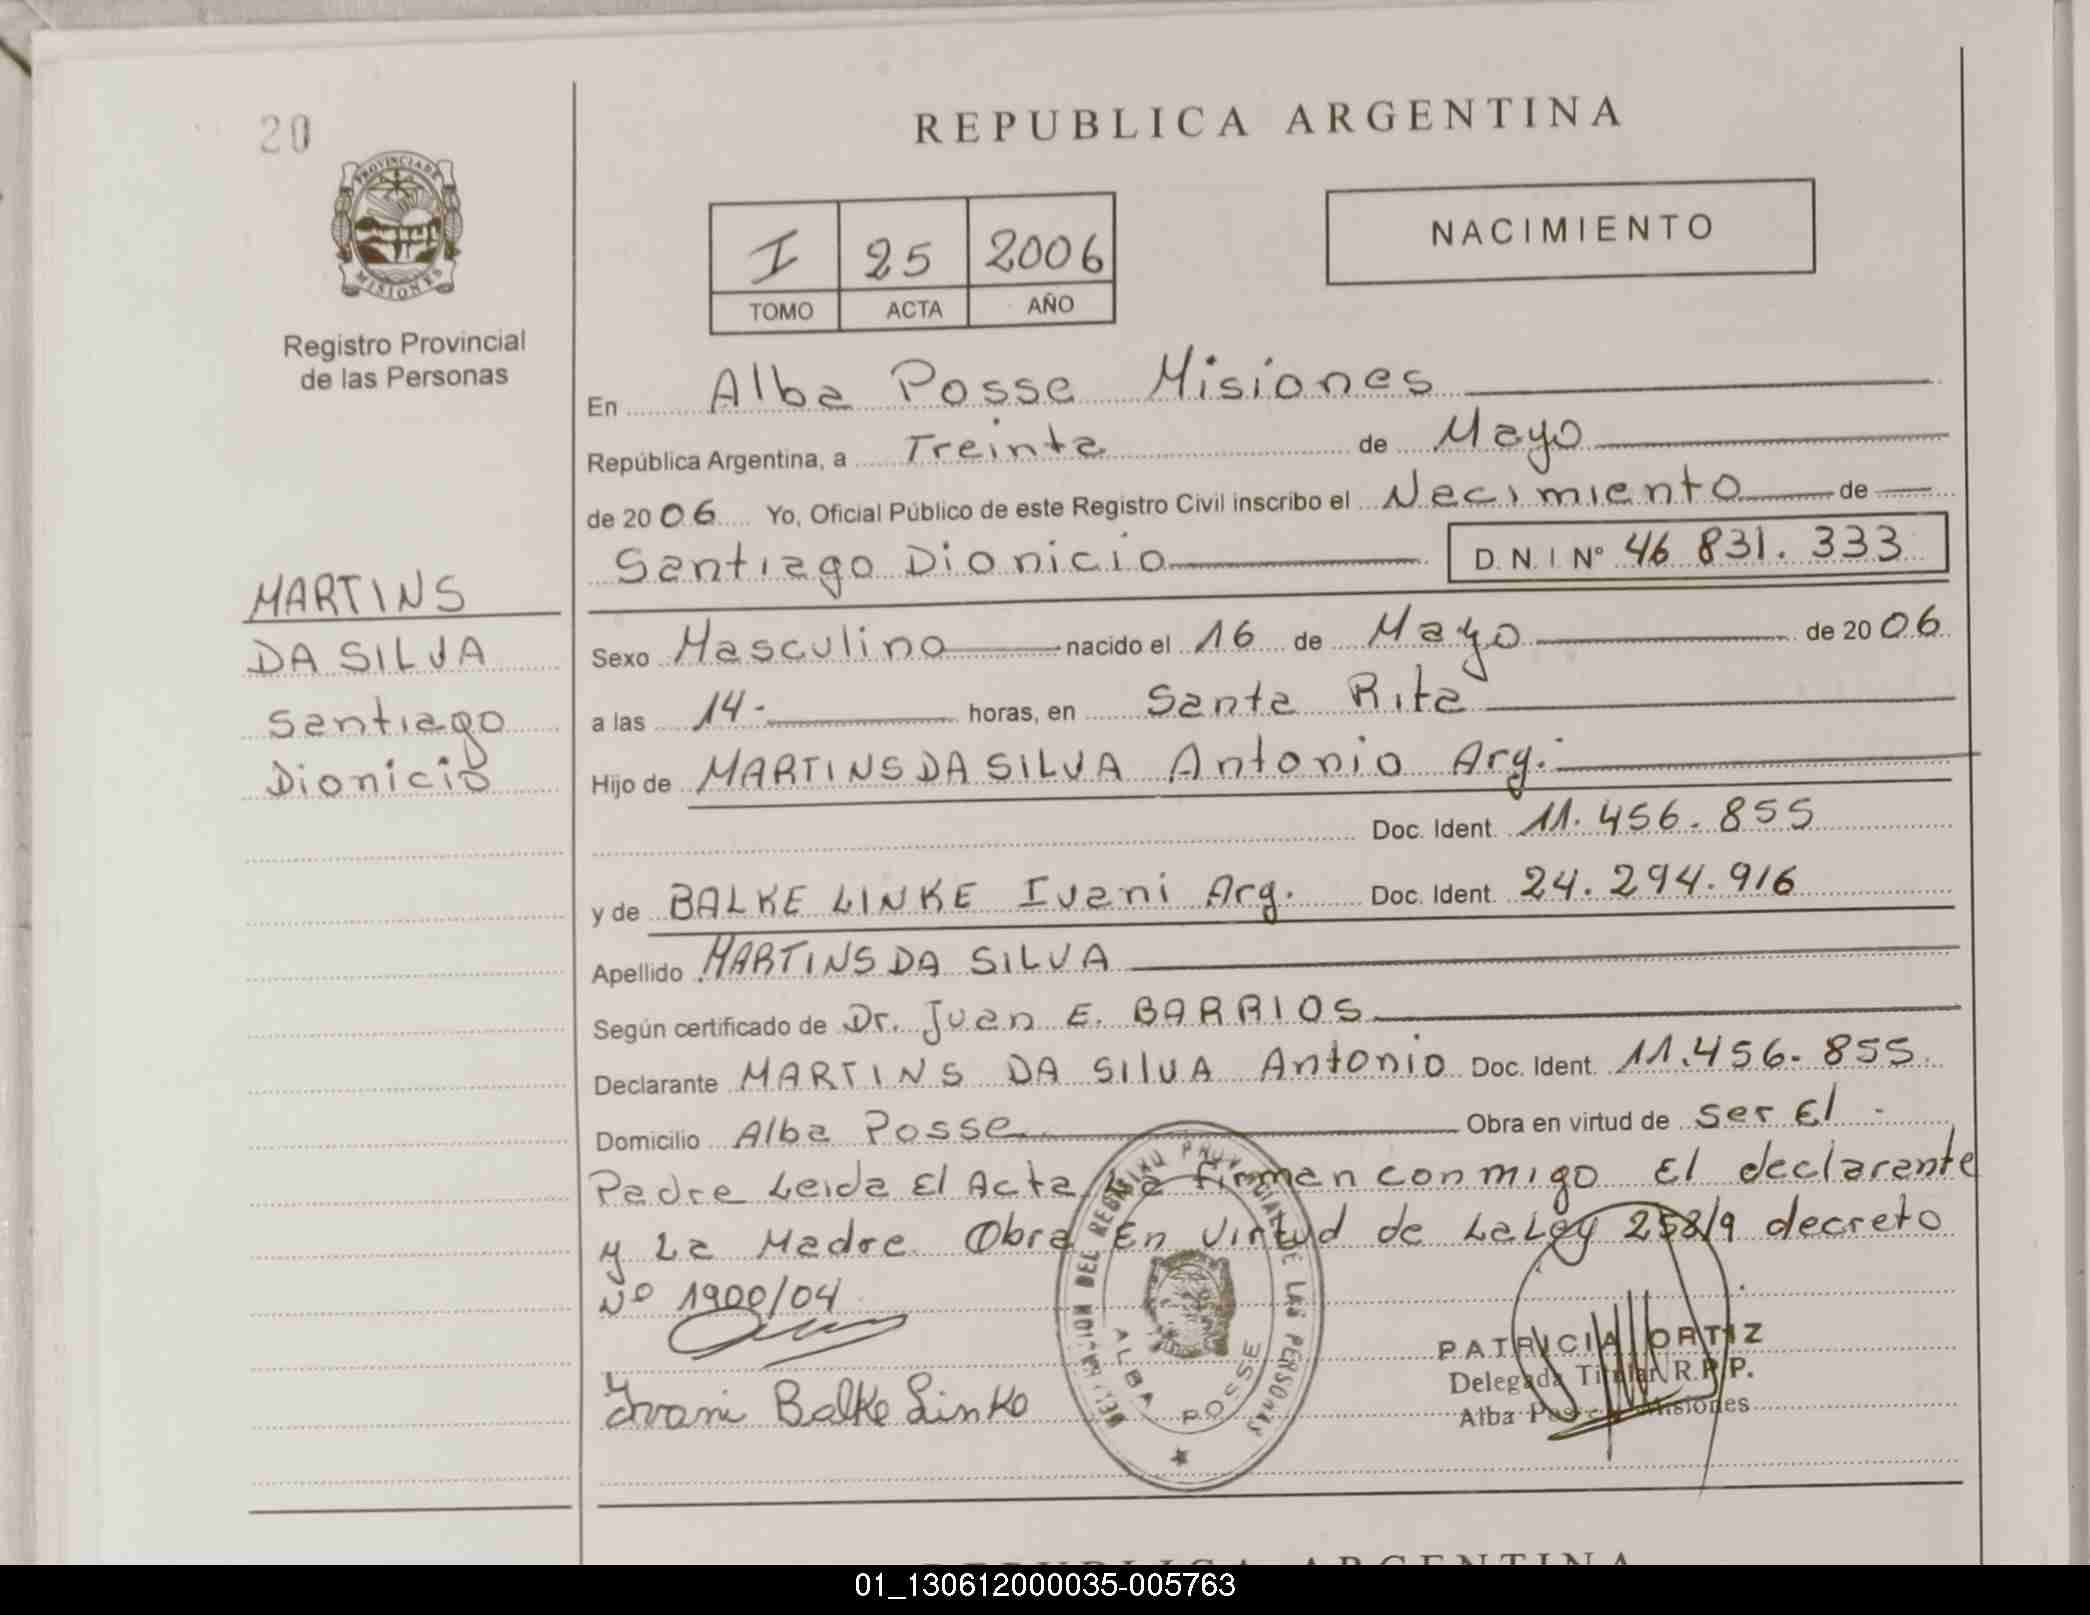 20
REPUBLICA ARGENTINA
PROVINCIA DE
MISIONES
Registro Provincial
de las Personas
I 25 2006
TOMO ACTA AÑO
NACIMIENTO
En Alba Posse Misiones
República Argentina, a Treinta de Mayo
de 2006 Yo, Oficial Público de este Registro Civil inscribo el Nacimiento de
Santiago Dionicio D.N.I Nº 46 831.333
MARTINS
DA SILVA
Santiago
Dionicio
Sexo Masculino nacido el 16 de Mayo de 2006
a las 14- horas, en Santa Rita
Hijo de MARTINS DA SILVA Antonio Arg.
Doc. Ident. 11.456.855
y de BALKE LINKE Ivani Arg. Doc. Ident. 24.294.916
Apellido MARTINS DA SILVA
Según certificado de Dr. Juan E. BARRIOS
Declarante MARTINS DA SILVA Antonio Doc. Ident. 11.456.855
Domicilio Alba Posse Obra en virtud de Ser El
Padre Leida El Acta La firman conmigo El declarante
y La Madre Obra En Virtud de La Ley 258/9 decreto
Nº 1900/04
DEL REGISTRO PROVINCIAL DE LAS PERSONAS
ALBA POSSE
Ivani Balke Linke
PATRICIA ORTIZ
Delegada Titular R.P.P.
Alba Posse Misiones
REPUBLICA ARGENTINA
01_130612000035-005763